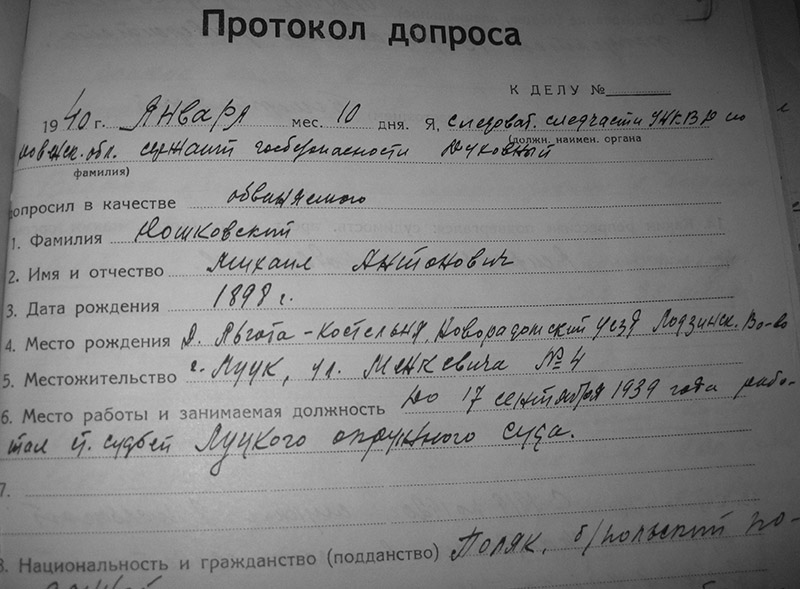 Протокол допроса
К ДЕЛУ №
1940 г. Января мес. 10 дня. Я, следоват. следчасти УНКВД по
(должн. наимен. органа
обл. сержант госбезопасности Духовный
фамилия)
допросил в качестве обвиняемого
1. Фамилия Ношковский
2. Имя и отчество Михаил Антонович
3. Дата рождения 1898 г.
4. Место рождения д. Льгота-Костельна, Новорадомский уезд Лодзинск. Во-во
5. Местожительство г. Луцк, ул. Менкевича № 4
6. Место работы и занимаемая должность До 17 сентября 1939 года рабо-
тал судьей Луцкого окружного суда.
7.
8. Национальность и гражданство (подданство) Поляк, б/польский по-